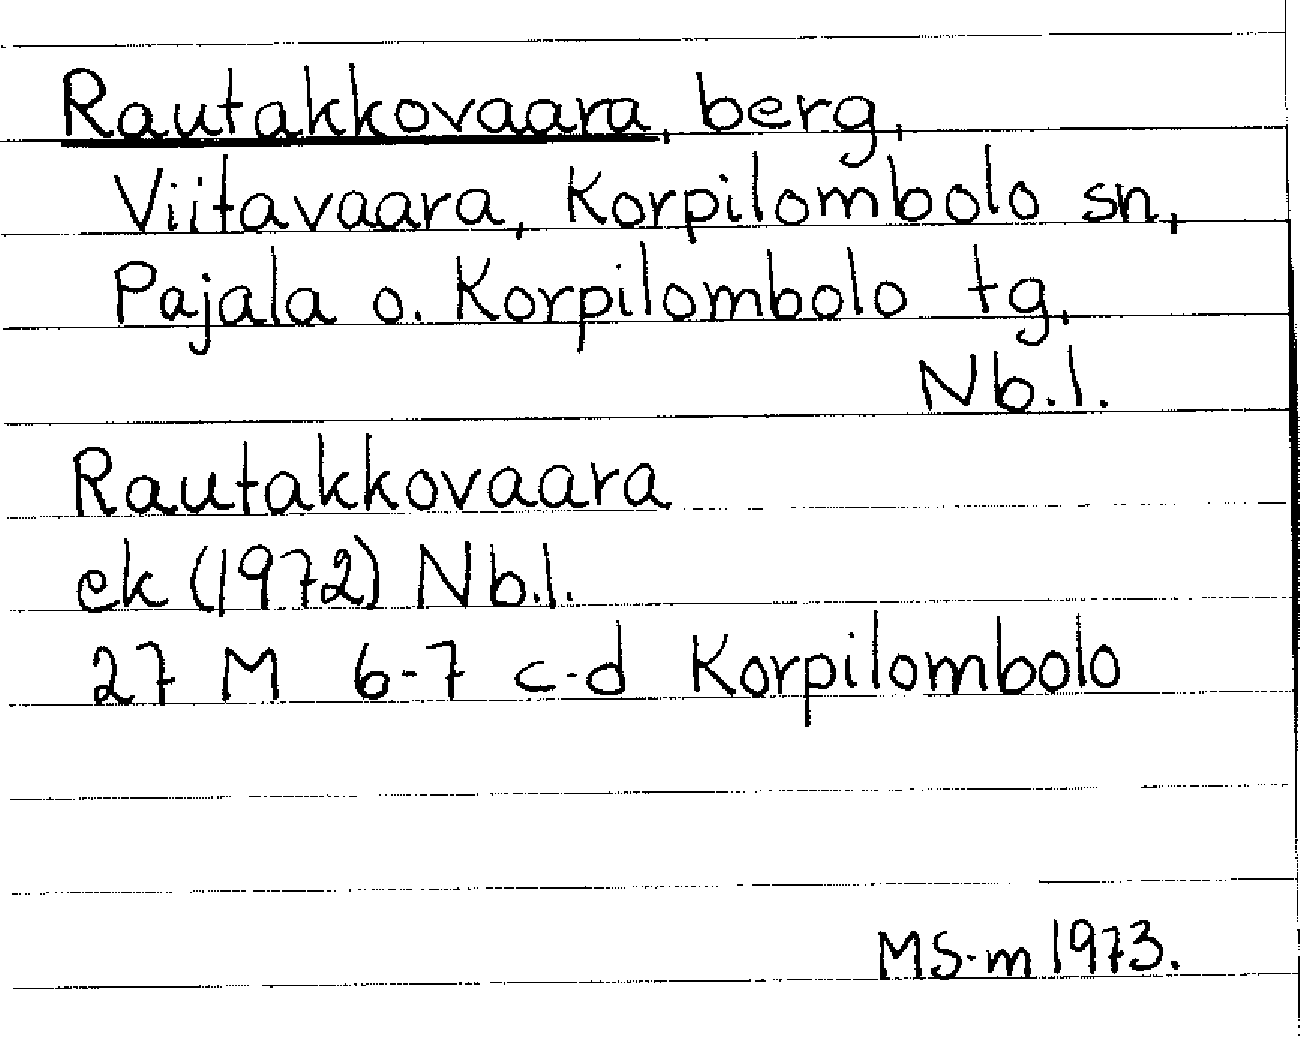 Rautakkovaara, berg,
Viitavaara, Korpilombolo sn,
Pajala o. Korpilombolo tg,
Nb.l.
Rautakkovaara
ek (1972) Nb.l.
27 M 6-7 c-d Korpilombolo
MS-m 1973.